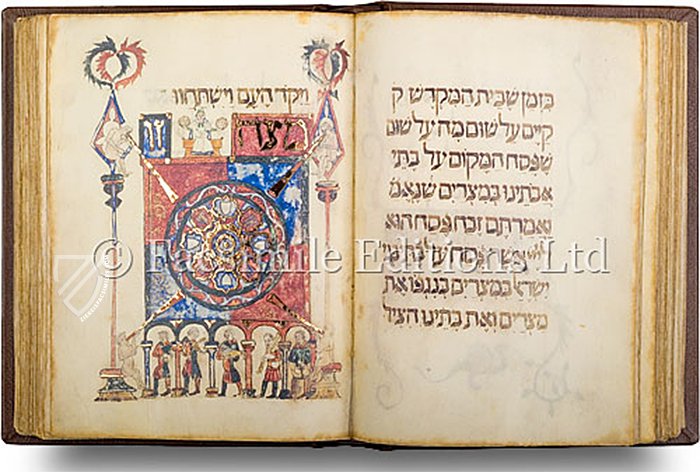 בזמן שבית המקדש ק
קיים על שום מה על שום
שפסח המקום על בתי
אבתינו במצרים שנאמ
ואמרתם זבח פסח הוא
אשר פסח על בתי
ישראל במצרים בנגפו את
מצרים ואת בתינו הציל
ויקד העם וישתחוו
מצה זו
© Facsimile Editions Ltd